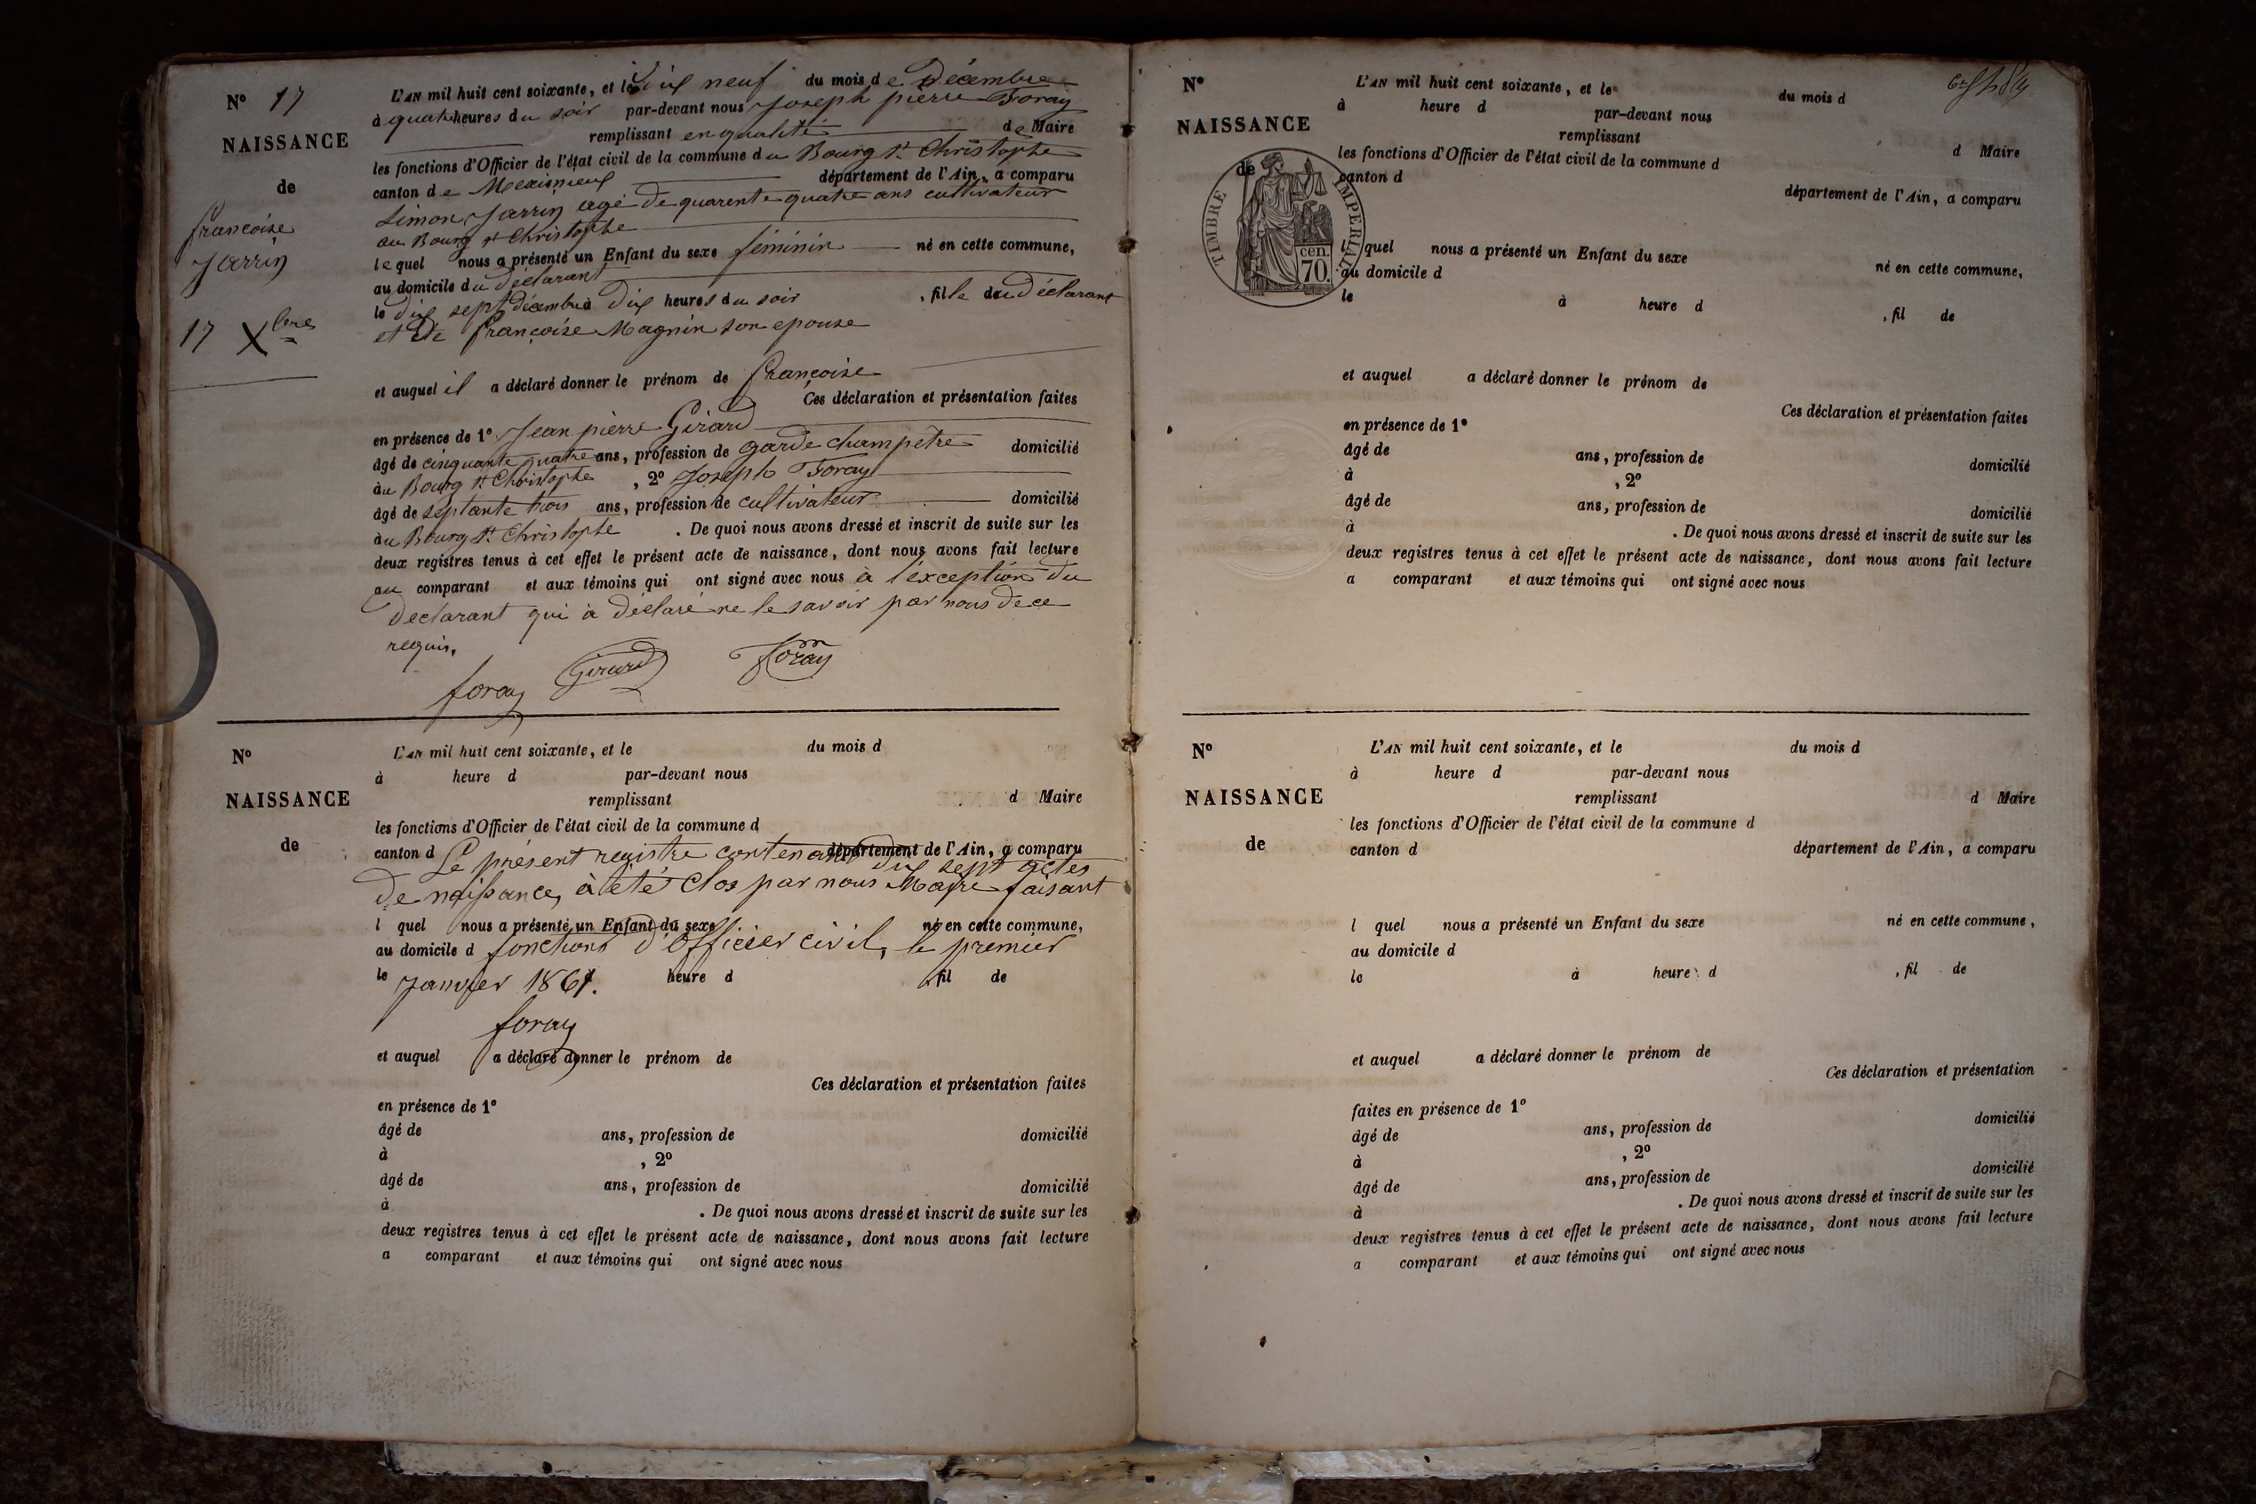 N° 17
NAISSANCE
de
francoise
Jarrin
17 Xbre
L'AN mil huit cent soixante, et le dix neuf du mois de Décembre
à quatre heures du soir par-devant nous Joseph pierre Foray
remplissant en qualité de Maire
les fonctions d'Officier de l'état civil de la commune du Bourg St Christophe
canton de Meximieux département de l'Ain, a comparu
Simon Jarrin agé de quarente quatre ans cultivateur
au Bourg St Christophe
lequel nous a présenté un Enfant du sexe féminin né en cette commune,
au domicile du déclarant
le dix sept décembre à dix heures du soir , fille du déclarant
et de françoise Magnin son epouse
et auquel il a déclaré donner le prénom de françoise
Ces déclaration et présentation faites
en présence de 1° Jean pierre Girard
âgé de cinquante quatre ans, profession de garde champêtre domicilié
au Bourg St Christophe , 2° Joseph Foray
âgé de septante trois ans, profession de cultivateur domicilié
au Bourg St Christophe . De quoi nous avons dressé et inscrit de suite sur les
deux registres tenus à cet effet le présent acte de naissance, dont nous avons fait lecture
au comparant et aux témoins qui ont signé avec nous à l'exception du
declarant qui à déclaré ne le savoir par nous de ce
requis.
foray Girard Foray
N°
NAISSANCE
de
L'AN mil huit cent soixante, et le du mois d
à heure d par-devant nous
remplissant d Maire
les fonctions d'Officier de l'état civil de la commune d
canton d département de l'Ain, a comparu
Le présent registre contenant dix sept actes
de naissance, à été clos par nous Maire faisant
l quel nous a présenté un Enfant du sexe né en cette commune,
au domicile d fonctions d'officier civil, le premier
le Janvier 1861. heure d , fil de
foray
et auquel a déclaré donner le prénom de
Ces déclaration et présentation faites
en présence de 1°
âgé de ans, profession de domicilié
à , 2°
âgé de ans, profession de domicilié
à . De quoi nous avons dressé et inscrit de suite sur les
deux registres tenus à cet effet le présent acte de naissance, dont nous avons fait lecture
a comparant et aux témoins qui ont signé avec nous
N°
NAISSANCE
de
TIMBRE IMPERIAL
cen.
70
L'AN mil huit cent soixante, et le du mois d
à heure d par-devant nous
remplissant
d Maire
les fonctions d'Officier de l'état civil de la commune d
canton d département de l'Ain, a comparu
l quel nous a présenté un Enfant du sexe né en cette commune,
au domicile d
le à heure d , fil de
et auquel a déclaré donner le prénom de
Ces déclaration et présentation faites
en présence de 1°
âgé de ans, profession de domicilié
à , 2°
âgé de ans, profession de domicilié
à . De quoi nous avons dressé et inscrit de suite sur les
deux registres tenus à cet effet le présent acte de naissance, dont nous avons fait lecture
a comparant et aux témoins qui ont signé avec nous
N°
NAISSANCE
de
L'AN mil huit cent soixante, et le du mois d
à heure d par-devant nous
remplissant d Maire
les fonctions d'Officier de l'état civil de la commune d
canton d département de l'Ain, a comparu
l quel nous a présenté un Enfant du sexe né en cette commune,
au domicile d
le à heure d , fil de
et auquel a déclaré donner le prénom de
Ces déclaration et présentation
faites en présence de 1°
âgé de ans, profession de domicilié
à , 2°
âgé de ans, profession de domicilié
à . De quoi nous avons dressé et inscrit de suite sur les
deux registres tenus à cet effet le présent acte de naissance, dont nous avons fait lecture
a comparant et aux témoins qui ont signé avec nous